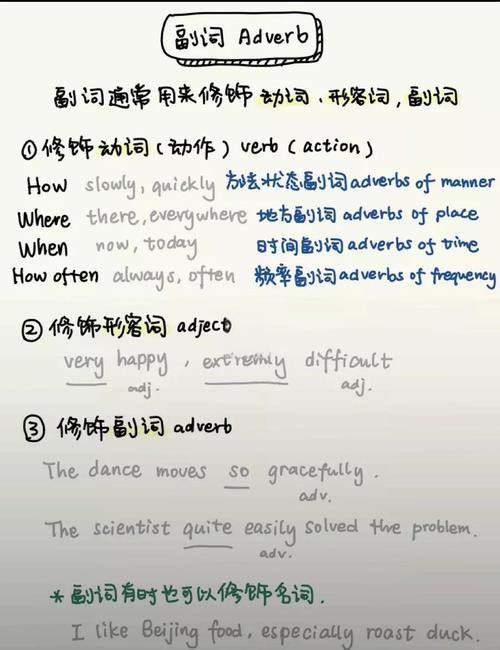 副词 Adverb
副词通常用来修饰动词、形容词，副词
① 修饰动词（动作）verb（action）
How slowly, quickly 方法状态副词 adverbs of manner
Where there, everywhere 地方副词 adverbs of place
When now, today 时间副词 adverbs of time
How often always, often 频率副词 adverbs of frequency
② 修饰形容词 adject
very happy , extremly difficult
adj. adj.
③ 修饰副词 adverb
The dance moves so gracefully .
adv.
The scientist quite easily solved the problem.
adv.
* 副词有时也可以修饰名词.
I like Beijing food, especially roast duck.